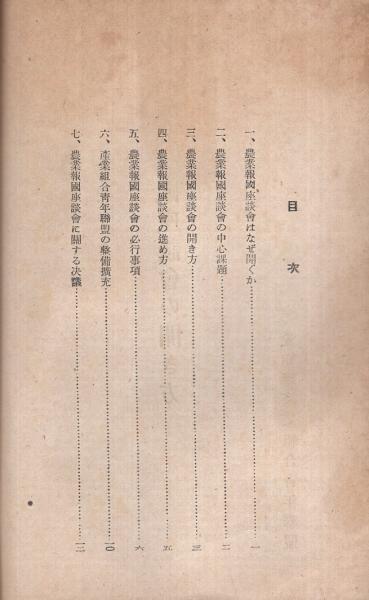 目次
一、農業報國座談會はなぜ開くか……一
二、農業報國座談會の中心課題……二
三、農業報國座談會の開き方……三
四、農業報國座談會の進め方……五
五、農業報國座談會の必行事項……六
六、產業組合靑年聯盟の整備擴充……一〇
七、農業報國座談會に關する決議……一二